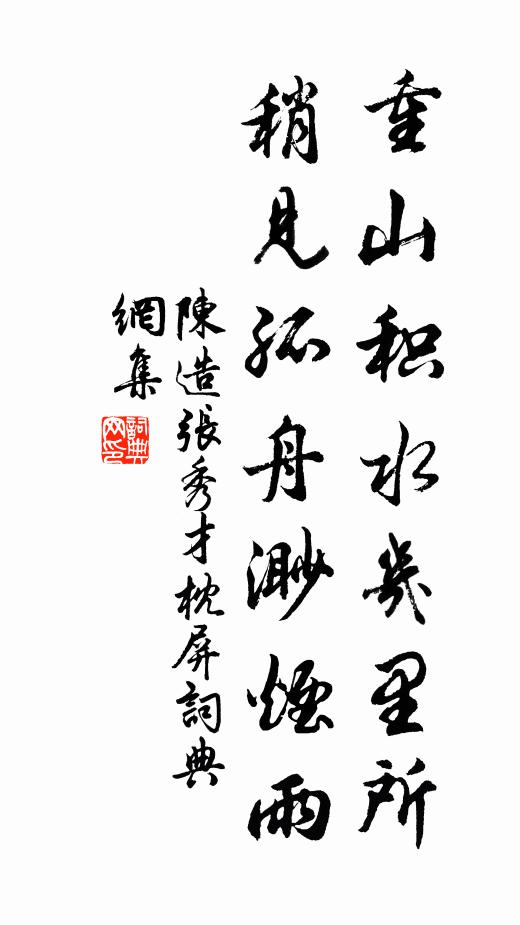 重山积水幾里所
稍見孤舟渺煙雨
陳造張秀才枕屏詞典
網集
詞典
网印